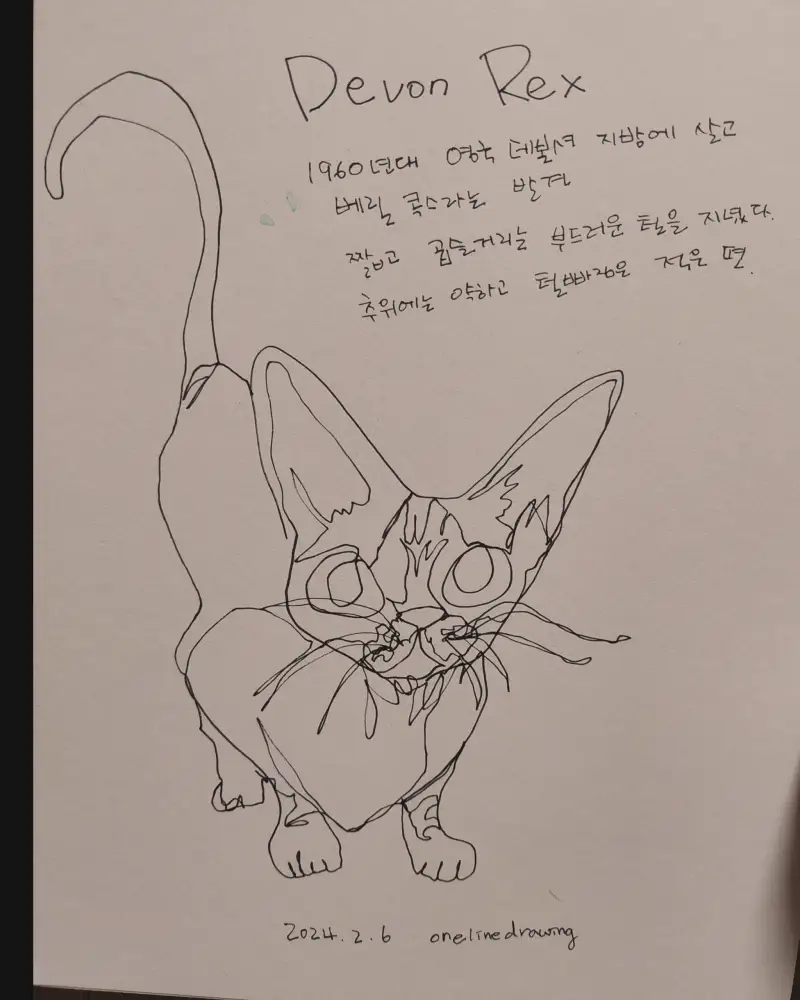 Devon Rex
1960년대 영국 데본셔 지방에 살고
베릴 콕스라는 발견
짧고 곱슬거리는 부드러운 털을 지녔다.
추위에는 약하고 털빠짐은 적은 편.
2024.2.6 onelinedrawing